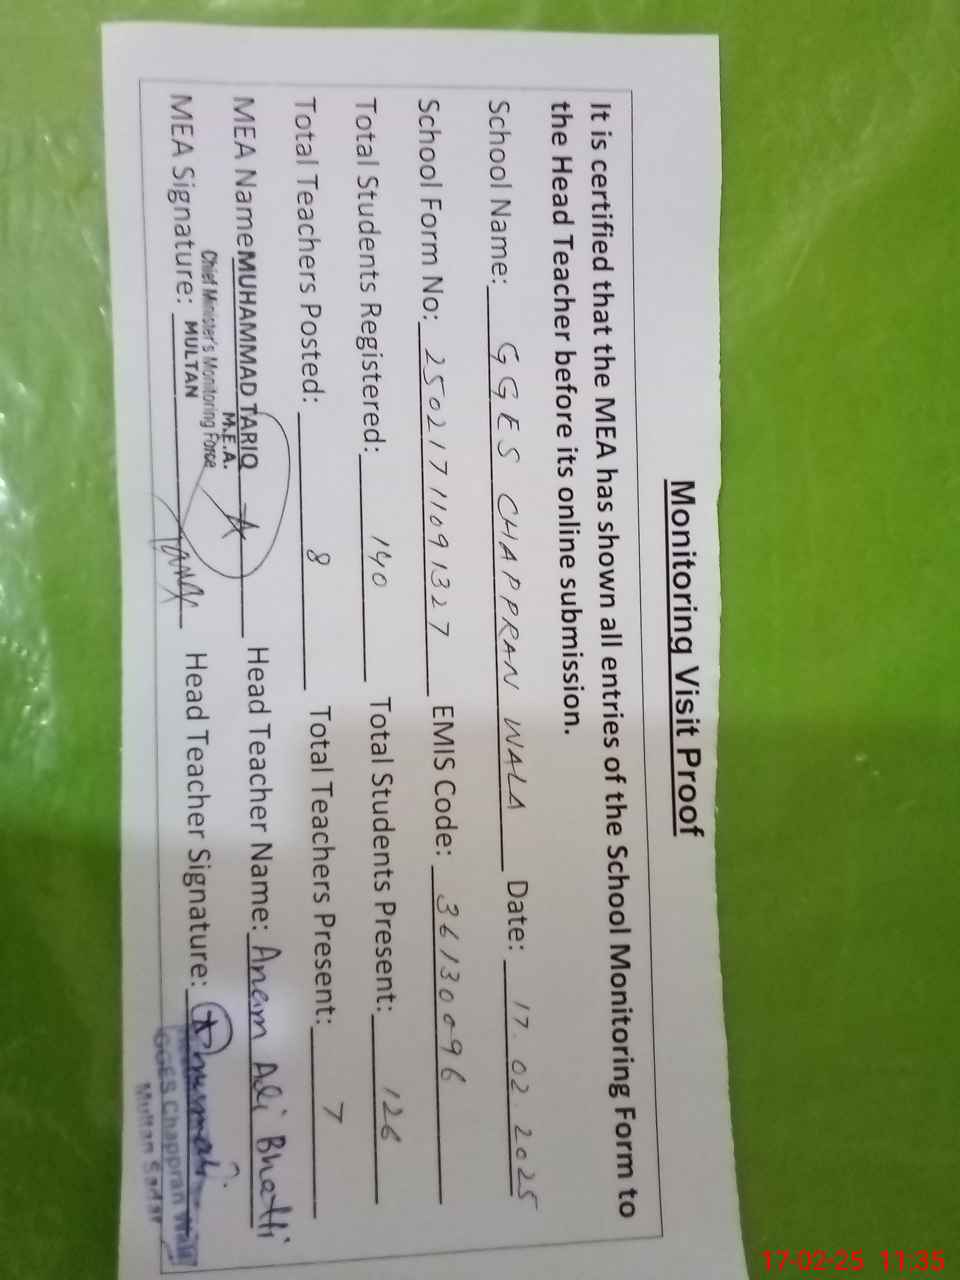 Monitoring Visit Proof
It is certified that the MEA has shown all entries of the School Monitoring Form to
the Head Teacher before its online submission.
School Name: GGES CHAPPRAN WALA Date: 17.02.2025
School Form No: 25021711091327 EMIS Code: 36130096
Total Students Registered: 140 Total Students Present: 126
Total Teachers Posted: 8 Total Teachers Present: 7
MEA Name MUHAMMAD TARIQ Head Teacher Name: Aneim Ali Bhatti
M.E.A.
Chief Minister's Monitoring Force
MEA Signature: MULTAN Head Teacher Signature:
GGES Chappran Wala
Multan Sadar
17-02-25 11:35